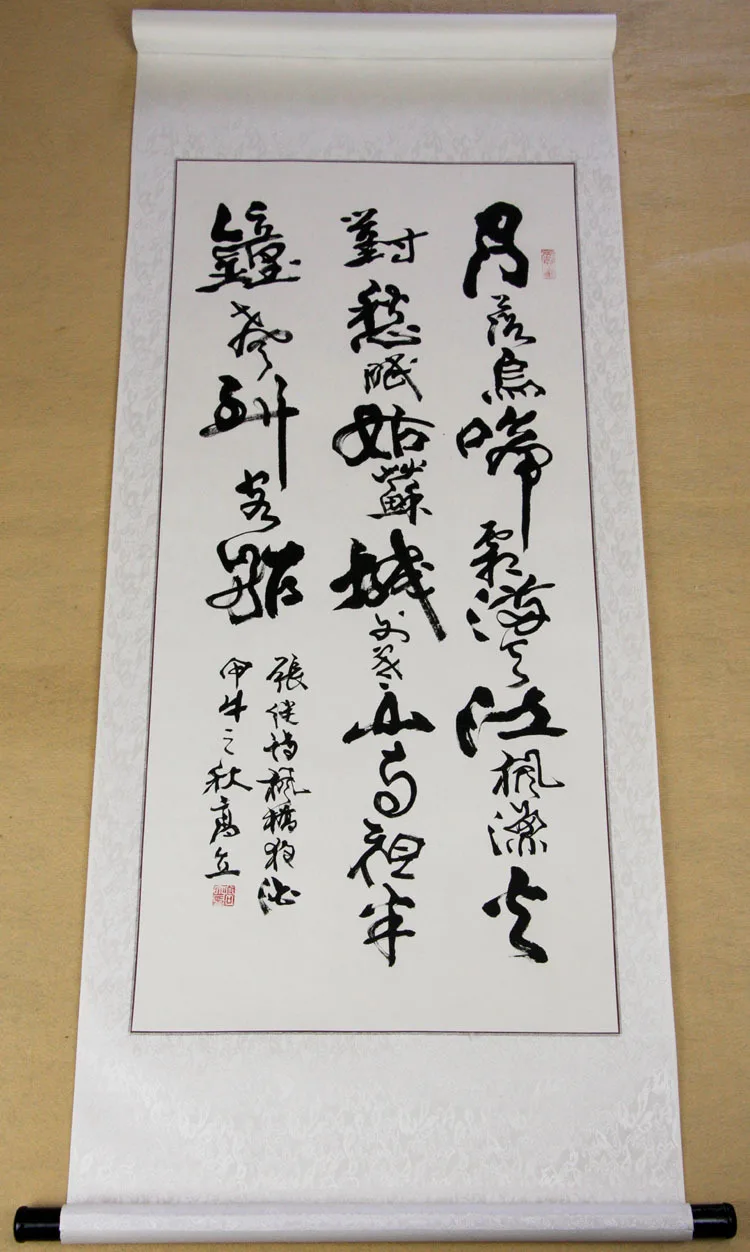 月落烏啼霜滿天江楓漁火
對愁眠姑蘇城外寒山寺夜半
鐘聲到客船
張継詩楓橋夜泊
甲午之秋高立